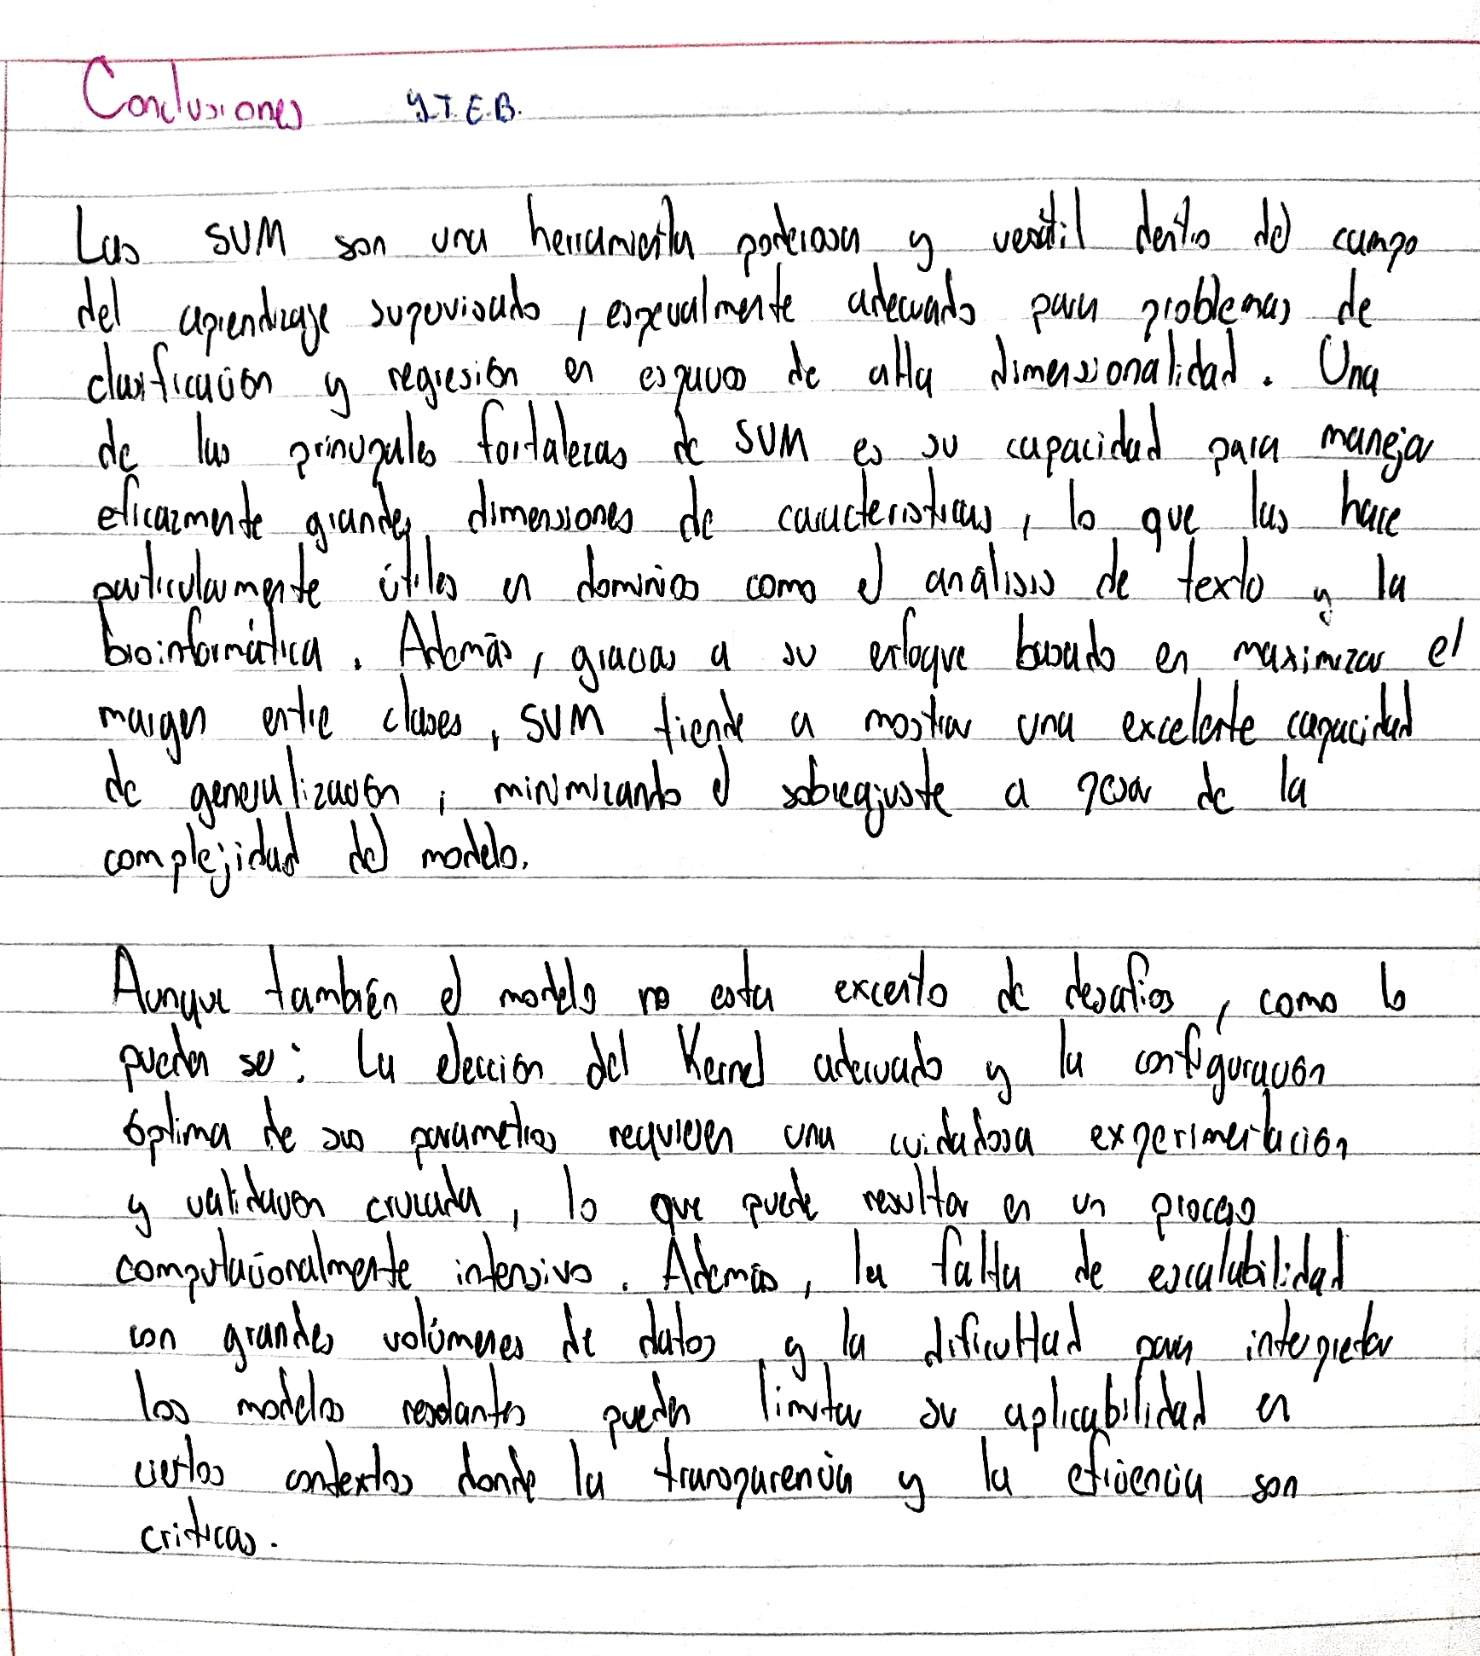 Conclusiones Y.T.E.B.
Las SVM son una herramienta poderosa y versátil dentro del campo
del aprendizaje supervisado, especialmente adecuado para problemas de
clasificación y regresión en espacios de alta dimensionalidad. Una
de las principales fortalezas de SVM es su capacidad para manejar
eficazmente grandes dimensiones de caracteristicas, lo que las hace
particularmente útiles en dominios como el análisis de texto y la
bioinformática. Además, gracias a su enfoque basado en maximizar el
margen entre clases, SVM tiende a mostrar una excelente capacidad
de generalización, minimizando el sobreajuste a pesar de la
complejidad del modelo.
Aunque también el modelo no esta excento de desafíos, como lo
pueden ser: La elección del Kernel adecuado y la configuración
óptima de sus parametros requieren una cuidadosa experimentación
y validación cruzada, lo que puede resultar en un proceso
computacionalmente intensivo. Además, la falta de escalabilidad
con grandes volúmenes de datos y la dificultad para interpretar
los modelos resolantes pueden limitar su aplicabilidad en
ciertos contextos donde la transparencia y la eficiencia son
criticas.